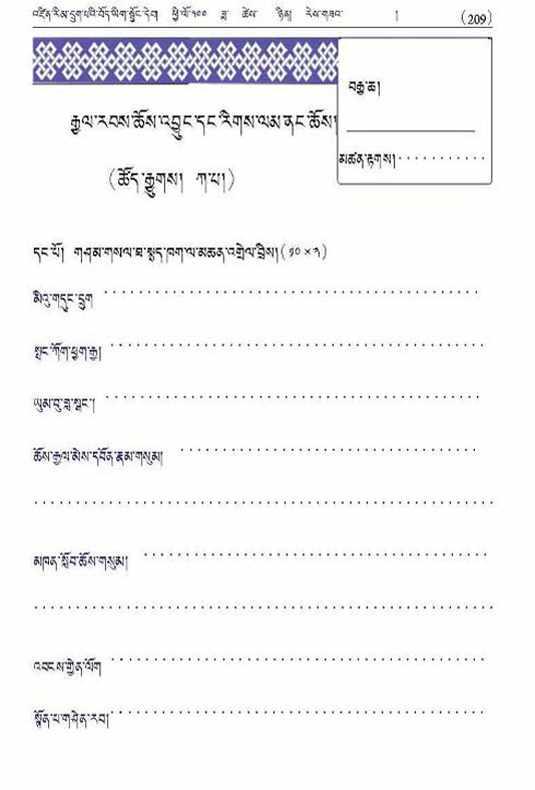 འཛིན་རིམ་དྲུག་པའི་བོད་ཡིག་སྦྱོང་དེབ། ཕྱི་ལོ་༢༠༠ ཟླ ཚེས ཉིན། རེས་གཟའ (209)
བརྒྱ་ཆ།
རྒྱལ་རབས་ཆོས་འབྱུང་དང་རིགས་ལམ་ནང་ཆོས།
མཚན་རྟགས།
(ཚོད་རྒྱུགས། ཀ་པ།)
དང་པོ། གཤམ་གསལ་ཐ་སྙད་ཁག་ལ་མཆན་འགྲེལ་བྲིས། (༡༠×༢)
མིའུ་གདུང་དྲུག
སྤང་ཀོང་ཕྱག་རྒྱ།
ཡུམ་བུ་བླ་སྒང་།
ཆོས་རྒྱལ་མེས་དབོན་རྣམ་གསུམ།
མཁན་སློབ་ཆོས་གསུམ།
འབངས་གྱེན་ལོག
སྟོན་པ་གཤེན་རབ།